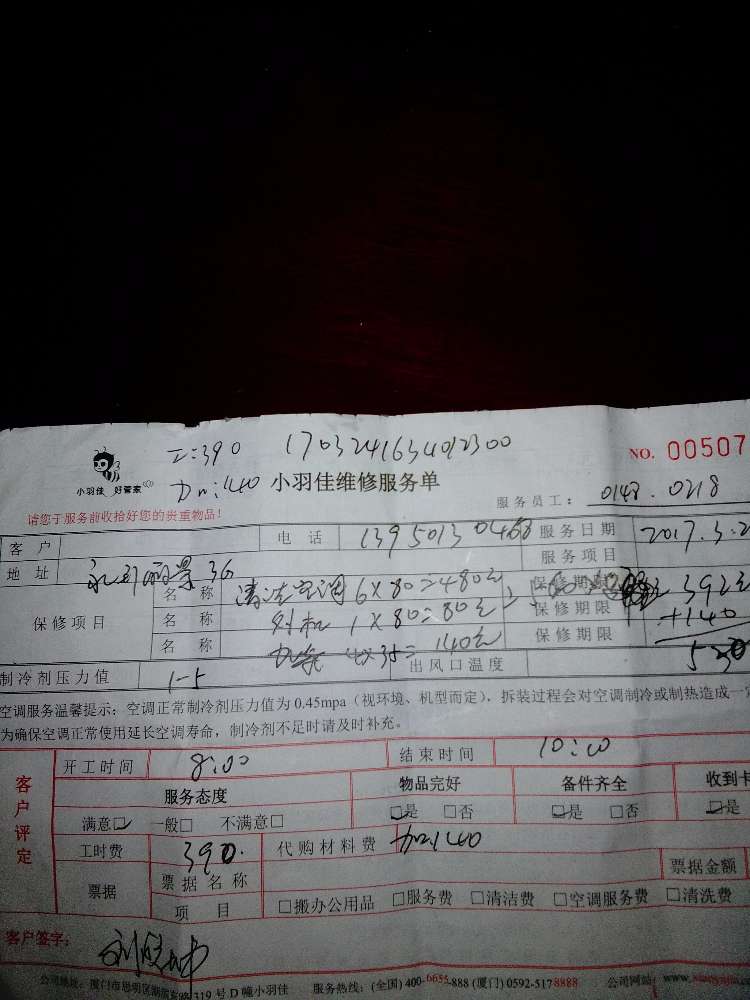 工:390 170324163492300
NO. 00507
小羽佳 好管家 加:140 小羽佳维修服务单
服务员工: 0148.0218
请您于服务前收拾好您的贵重物品!
客户 电话 13950130468 服务日期 2017.3.2
地址 景3G 服务项目
保修项目 名称 清洁空调6X80=480元 保修期限 392元
名称 外机1X80=80元 保修期限 +140
名称 4X35=140元 保修期限 530
制冷剂压力值 1-5 出风口温度
空调服务温馨提示: 空调正常制冷剂压力值为0.45mpa(视环境、机型而定), 拆装过程会对空调制冷或制热造成一
为确保空调正常使用延长空调寿命, 制冷剂不足时请及时补充。
客户评定 开工时间 8:00 结束时间 10:00
服务态度 物品完好 备件齐全 收到卡
满意□ 一般□ 不满意□ □是 □否 □是 □否 □是
工时费 390. 代购材料费 加140
票据 票据名称 票据金额
项目 □搬办公用品 □服务费 □清洁费 □空调服务费 □清洗费
客户签字:
公司地址: 厦门市思明区 319号D幢小羽佳 服务热线: (全国) 400-6655-888 (厦门) 0592-5178888 公司网站: www.